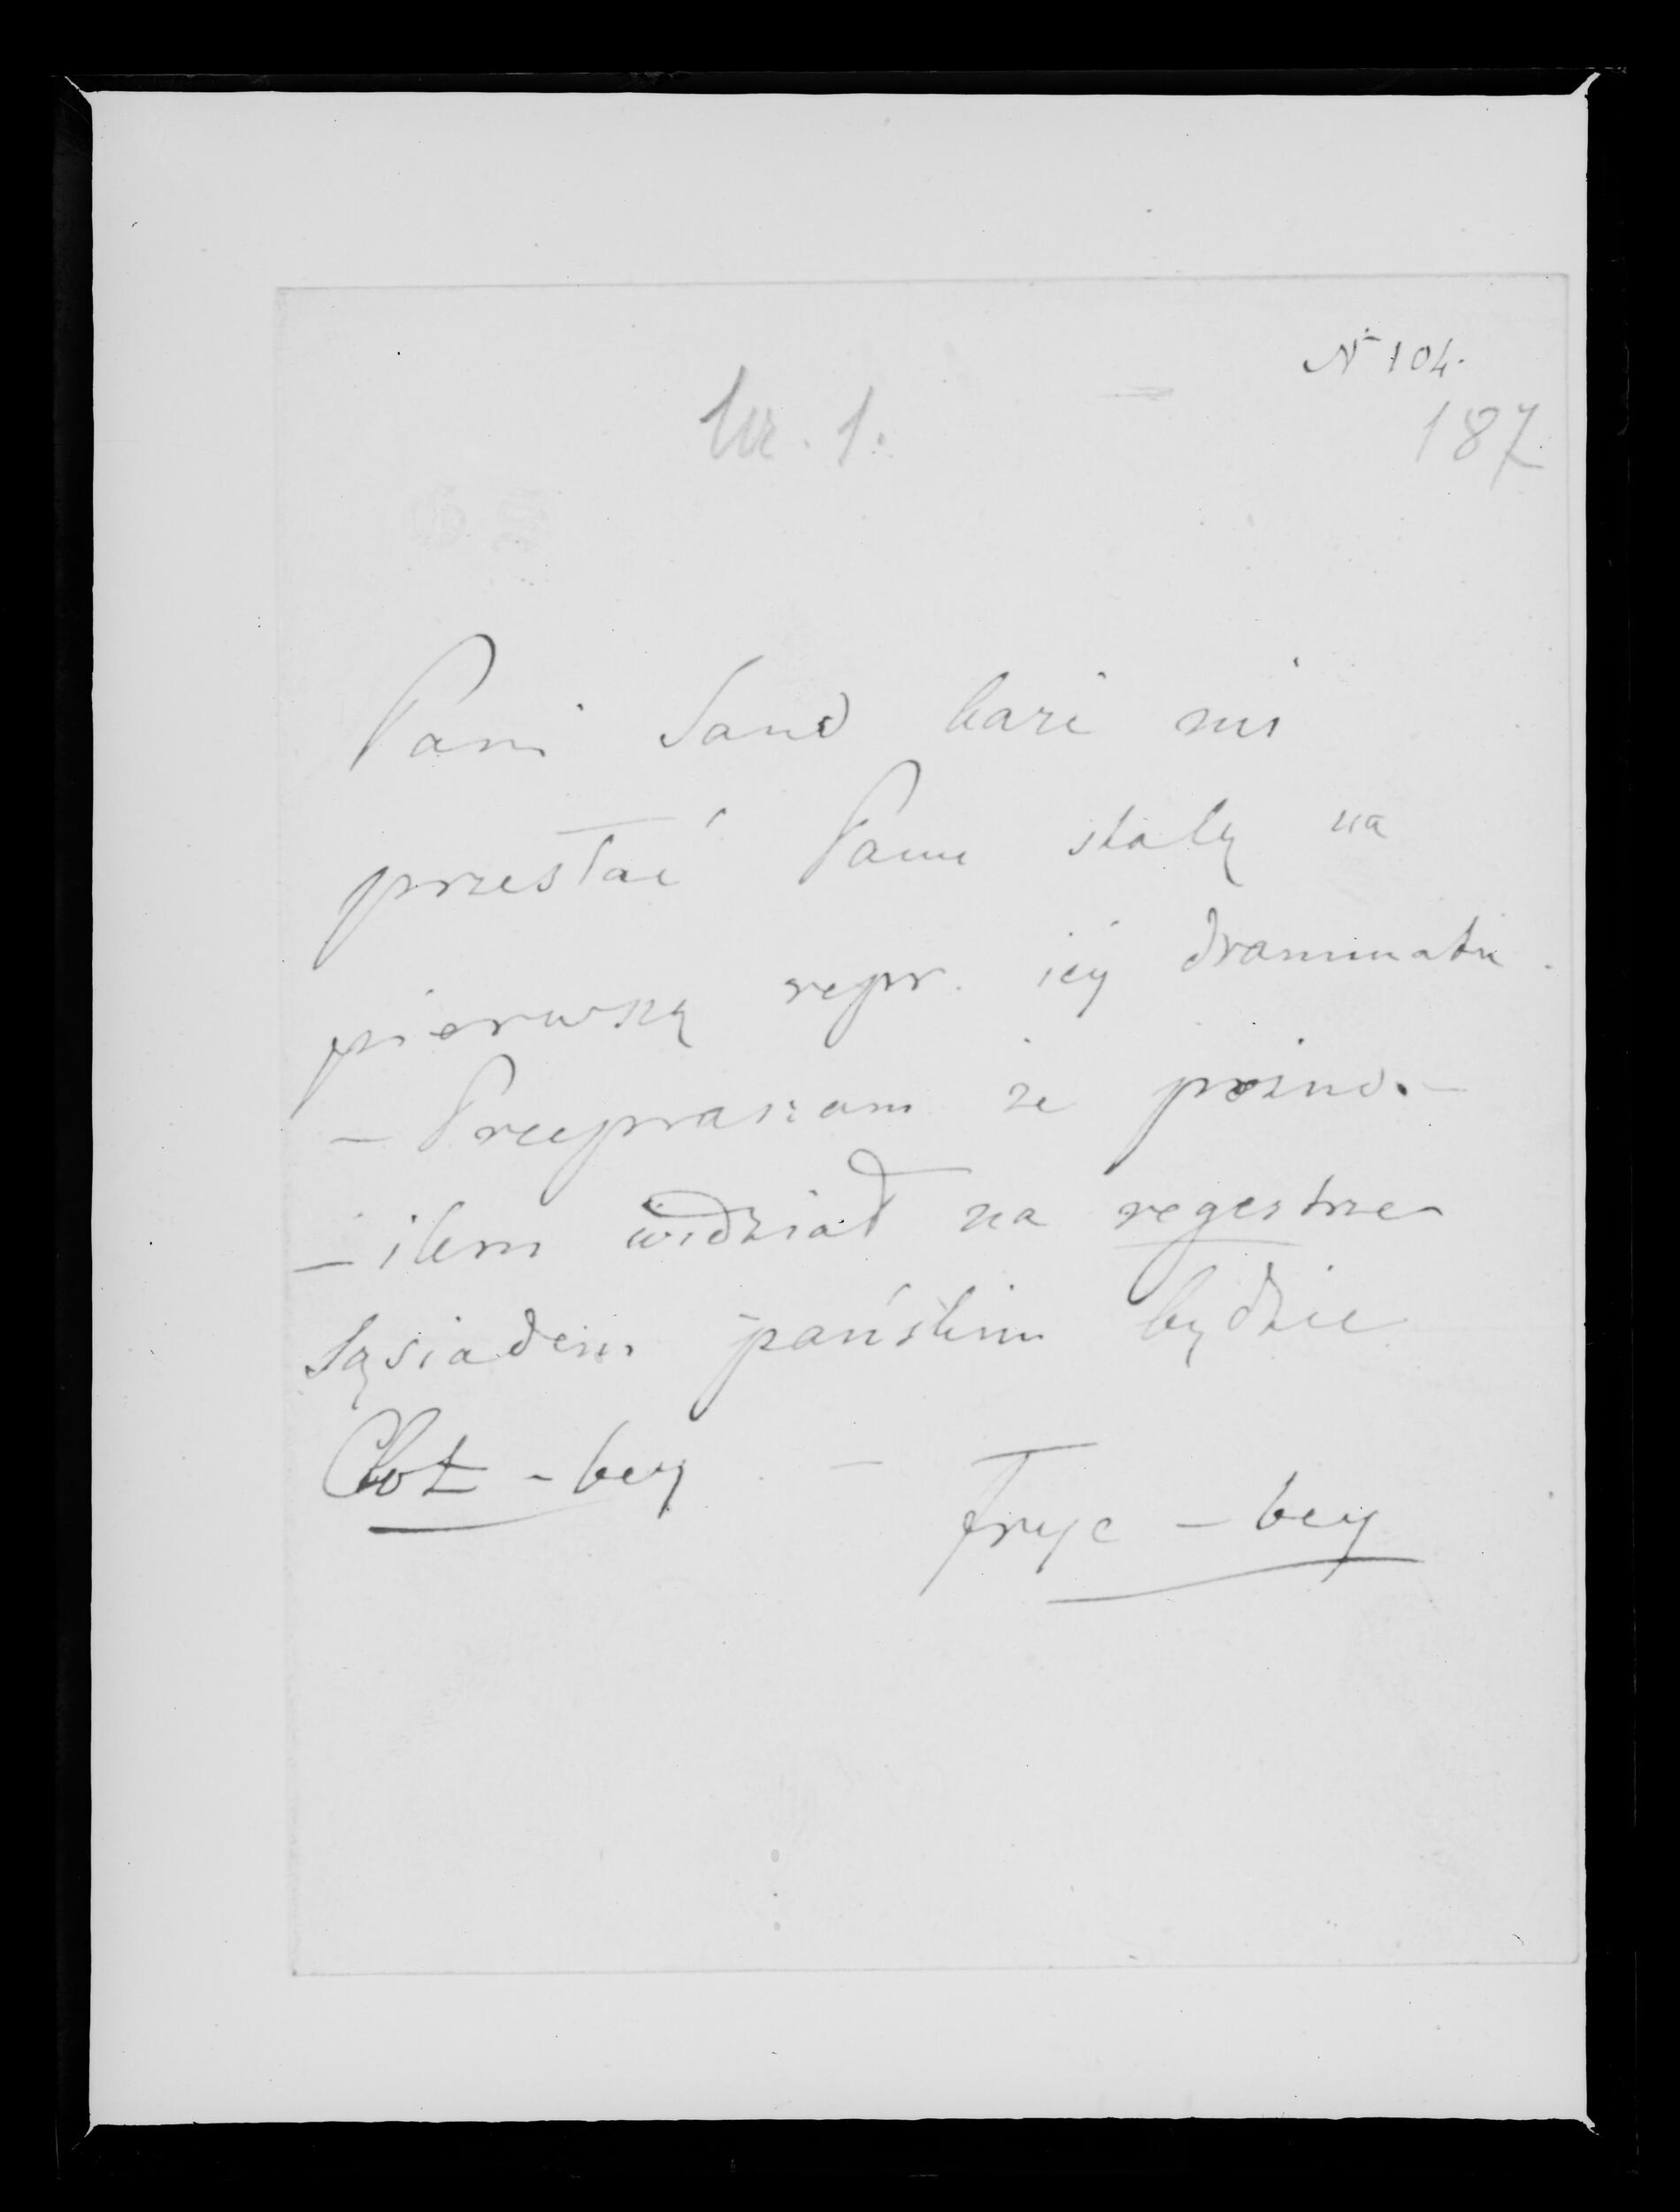 Nr 104.
Nr. 1.
187
Pani Sand każe mi
przesłać Panu stalę na
pierwszą repr. iéy drammatu.
– Przepraszam że pożno. –
– ilem widział na regestrze
Sąsiadem pańskim będzie
Clot – bey –
Fryc – bey